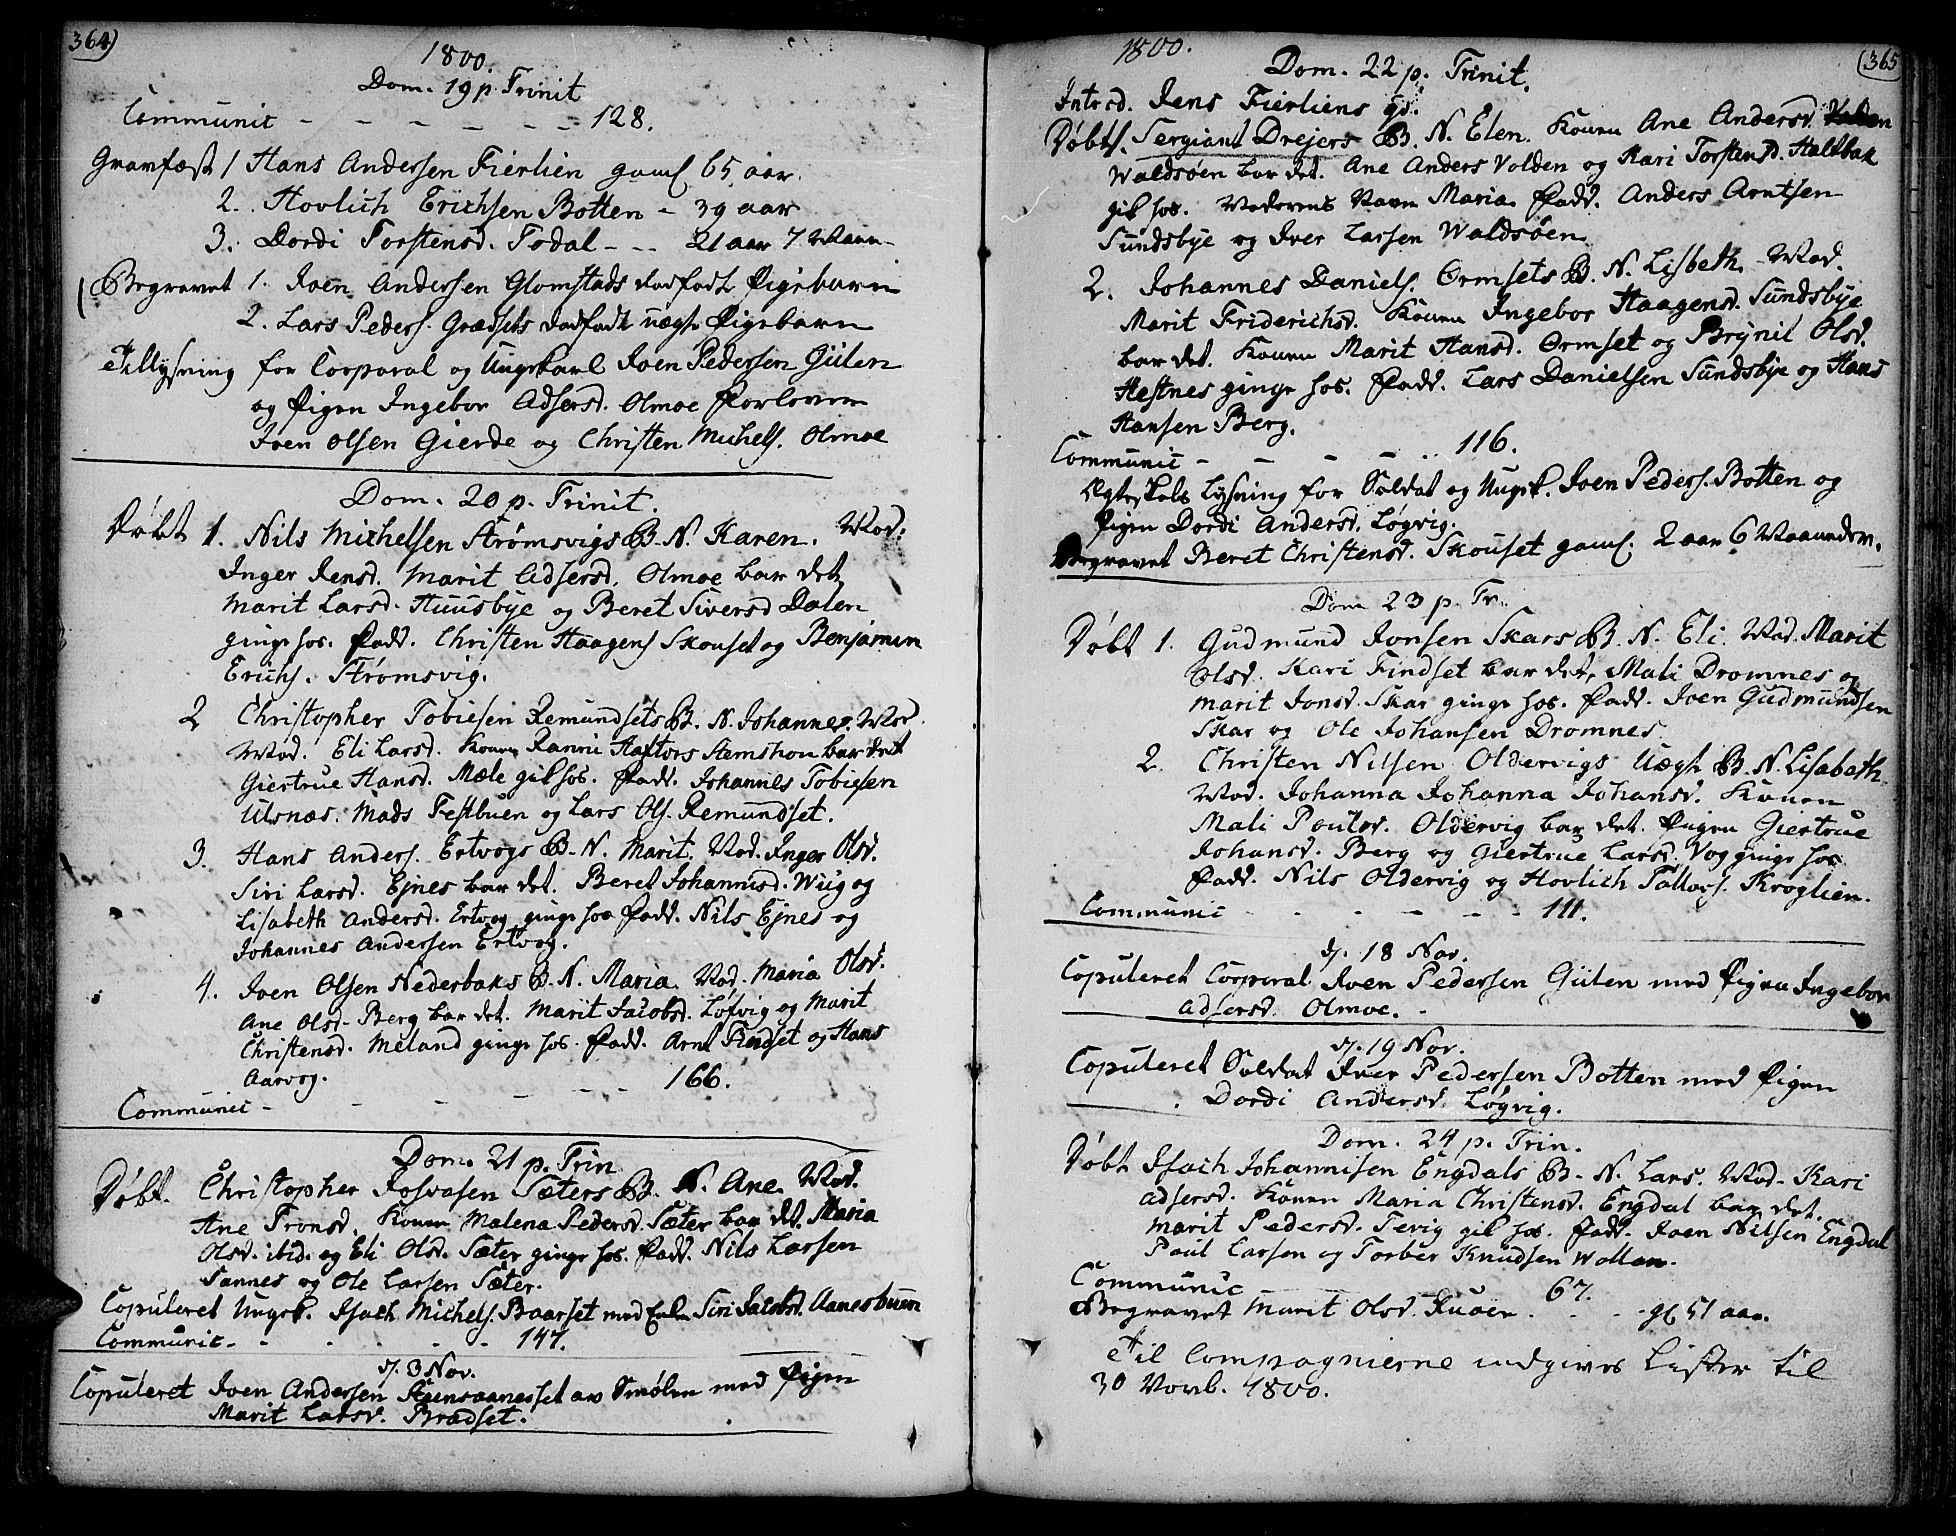 364)
1800.
Dom. 19 p. Trinit
Communic - - - - - - 128.
Gravfæst 1 Hans Andersen Fierlien gaml 65 aar.
2. Hovlich Erichsen Botten - 39 aar
3. Dordi Torstensd. Todal - - 21 aar 7 Maan-
Begravet 1. Joen Andersen Glomstads dødfødt Pigebarn
2. Lars Peders. Grædsets dødfødt uægte Pigebarn
Tillysning for Corporal og Ungekarl Joen Pedersen Gülen
og Pigen Ingebor Adsersd. Olmoe Forlovere
Joen Olsen Gierde og Christen Michels. Olmoe
Dom. 20 p. Trinit.
Døbt 1. Nils Michelsen Strømsvigs B. N. Karen. Mod:
Inger Jensd. Marit Adsersd. Olmoe bar det
Marit Larsd. Huusbye og Beret Siversd Dalen
ginge hos. Fadd. Christen Haagens Skouset og Benjamin
Erichs. Strømsvig.
2 Christopher Tobiesen Remundsets B. N. Johannes. Mod
Mod. Eli Larsd. Konen Ranni Haftors Stemshou bar det
Giertrue Hansd. Mæle gik hos. Fadd. Johannes Tobiesen
Ulsnæs. Mads Festbuen og Lars Ols. Remundset.
3. Hans Anders. Ertvogs B. N. Marit. Mod. Inger Olsd.
Siri Larsd. Ejnes bar det. Beret Johannisd. Wiig og
Lisabeth Andersd. Ertvog ginge hos Fadd. Nils Ejnes og
Johannes Andersen Ertvog.
4. Joen Olsen Nederbaks B. N. Maria. Mod. Maria Olsd.
Ane Olsd. Berg bar det. Marit Jacobsd. Løfvig og Marit
Christensd. Meland ginge hos. Fadd. Arnt Findset og Hans
Aarvog.
Communic - - - - - - 166.
Dom. 21 p. Trin
Døbt. Christopher Josvasen Sæters B. N. Ane. Mod.
Ane Tronsd. Konen Malena Pedersd. Sæter bar det. Maria
Olsd. ibid. og Eli Olsd. Sæter ginge hos. Fadd. Nils Larsen
Sannes og Ole Larsen Sæter.
Copuleret Ungk. Isach Michels. Baarset med Enke Siri Jacobsd. Aanesbuen
Communic - - - - - 147.
d. 3 Nov.
Copuleret Joen Andersen av Smølen med Pigen
Marit Larsd. Bradset.
1800.
(365
Dom. 22 p. Trinit.
Introd. Jens Fierliens
Døbt 1. Sergiant Drejers B. N. Elen. Konen Ane Andersd.
Waldsøen bar det. Ane Anders Volden og Kari Torstensd. Haltbak
gik hos. Moderens Navn Maria. Fadd. Anders Arntsen
Sundsbye og Iver Larsen Waldsøen
2. Johannes Daniels. Ormsets B. N. Lisbeth. Mod.
Marit Friderichsd. Konen Ingebor Haagensd. Sundsbye
bar det. Konen Marit Hansd. Ormset og Brynil Olsd.
Hestnes ginge hos. Fadd. Lars Danielsen Sundsbye og Hans
Hansen Berg.
Communic - - - - - 116.
Ægteskabs Lysning for Soldat og Ungk. Joen Peders. Botten og
Pigen Dordi Andersd. Løgvig.
Begravet Beret Christensd. Skouset gaml. 2 aar 6 Maaneder.
Dom 23 p. Tr.
Døbt 1. Gudmund Jonsen Skars B. N. Eli. Mod. Marit
Olsd. Kari Findset bar det. Mali Dromnes og
Marit Jonsd. Skar ginge hos. Fadd. Joen Gudmundsen
Skar og Ole Johansen Dromnes.
2. Christen Nilsen Oldervigs Uægte B. N. Lisabeth.
Mod. Johanna Johanna Johansd. Konen
Mali Poulsd. Oldervig bar det. Pigen Giertrue
Johansd. Berg og Giertrue Larsd. Vog ginge hos
Fadd. Nils Oldervig og Hovlich Tallags. Kroglien.
Communic - - - - - - 111.
d. 18 Nov.
Copuleret Corporal Joen Pedersen Gülen med Pigen Ingebor
Adsersd. Olmoe.
d. 19 Nov.
Copuleret Soldat Iver Pedersen Botten med Pigen
Dordi Andersd. Løgvig.
Dom. 24 p. Trin.
Døbt Isach Johannisen Engdals B. N. Lars. Mod. Kari
Adsersd. Konen Maria Christensd. Engdal bar det.
Marit Pedersd. Tevig gik hos. Fadd. Joen Nilsen Engdal
Paul Larsen og Torber Knudsen Wollan.
Communic - - - - - 67.
Begravet Marit Olsd. Ruøen - - - gl 51 aar.
Til Compagnierne indgives Lister til
30 Novb. 1800.